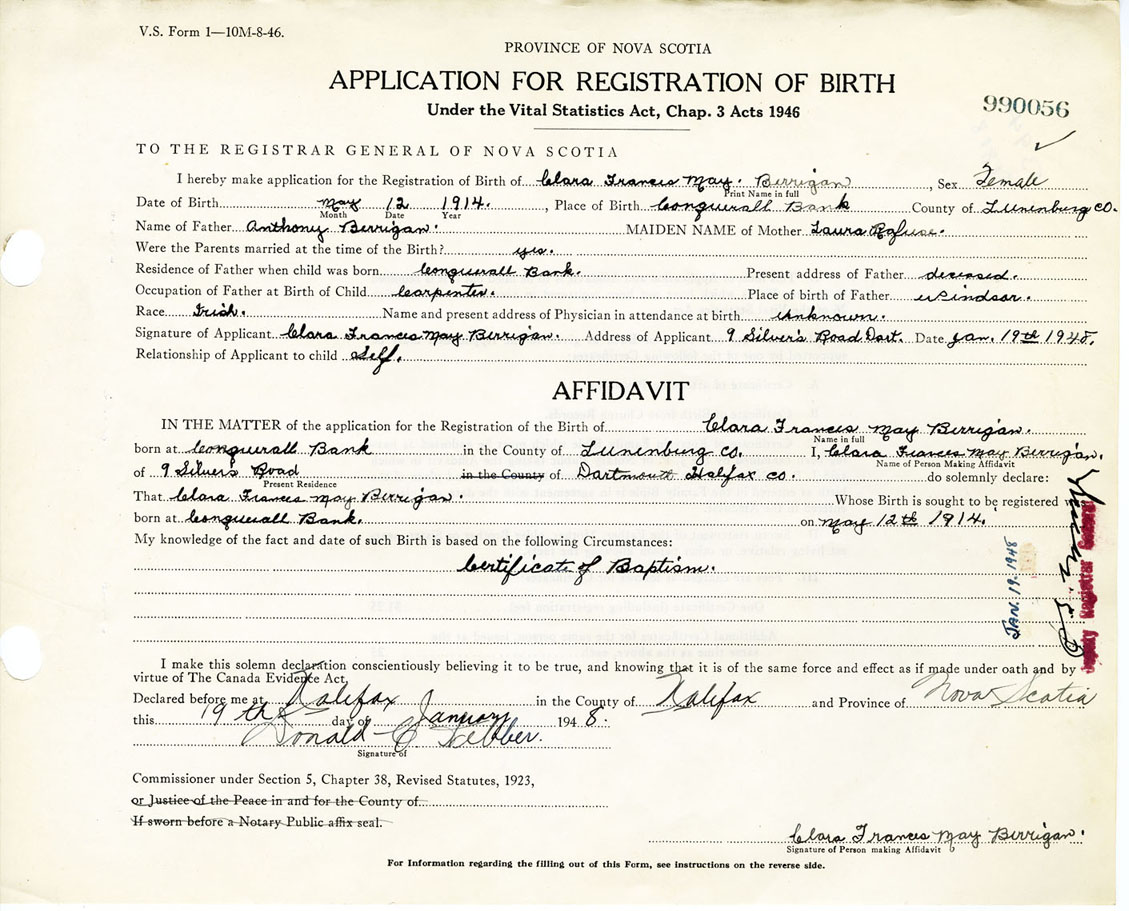 V.S. Form 1—10M-8-46.
PROVINCE OF NOVA SCOTIA
APPLICATION FOR REGISTRATION OF BIRTH
Under the Vital Statistics Act, Chap. 3 Acts 1946
990056
TO THE REGISTRAR GENERAL OF NOVA SCOTIA
I hereby make application for the Registration of Birth of Clara Francis May. Berrigan, Sex Female
Print Name in full
Date of Birth May 12 1914., Place of Birth Conquerall Bank County of Lunenburg Co.
Month Date Year
Name of Father Anthony Berrigan. MAIDEN NAME of Mother Laura Rafuse.
Were the Parents married at the time of the Birth? yes.
Residence of Father when child was born Conquerall Bank. Present address of Father deceased.
Occupation of Father at Birth of Child Carpenter. Place of birth of Father Windsor.
Race Irish. Name and present address of Physician in attendance at birth Unknown.
Signature of Applicant Clara Francis May Berrigan. Address of Applicant 9 Silver's Road Dart. Date Jan. 19th 1948.
Relationship of Applicant to child Self.
AFFIDAVIT
IN THE MATTER of the application for the Registration of the Birth of Clara Francis May Berrigan.
Name in full
born at Conquerall Bank in the County of Lunenburg Co. I, Clara Francis May Berrigan.
Name of Person Making Affidavit
of 9 Silver's Road in the County of Dartmouth Halifax Co. do solemnly declare:
Present Residence
That Clara Francis May Berrigan. Whose Birth is sought to be registered
born at Conquerall Bank. on May 12th 1914.
My knowledge of the fact and date of such Birth is based on the following Circumstances:
Certificate of Baptism.
JAN. 19. 1948
Deputy Registrar General
I make this solemn declaration conscientiously believing it to be true, and knowing that it is of the same force and effect as if made under oath and by
virtue of The Canada Evidence Act.
Declared before me at Halifax in the County of Halifax and Province of Nova Scotia
this 19th day of January 1948.
Donald C
Signature of
Commissioner under Section 5, Chapter 38, Revised Statutes, 1923,
or Justice of the Peace in and for the County of
If sworn before a Notary Public affix seal.
Clara Francis May Berrigan.
Signature of Person making Affidavit
For Information regarding the filling out of this Form, see instructions on the reverse side.